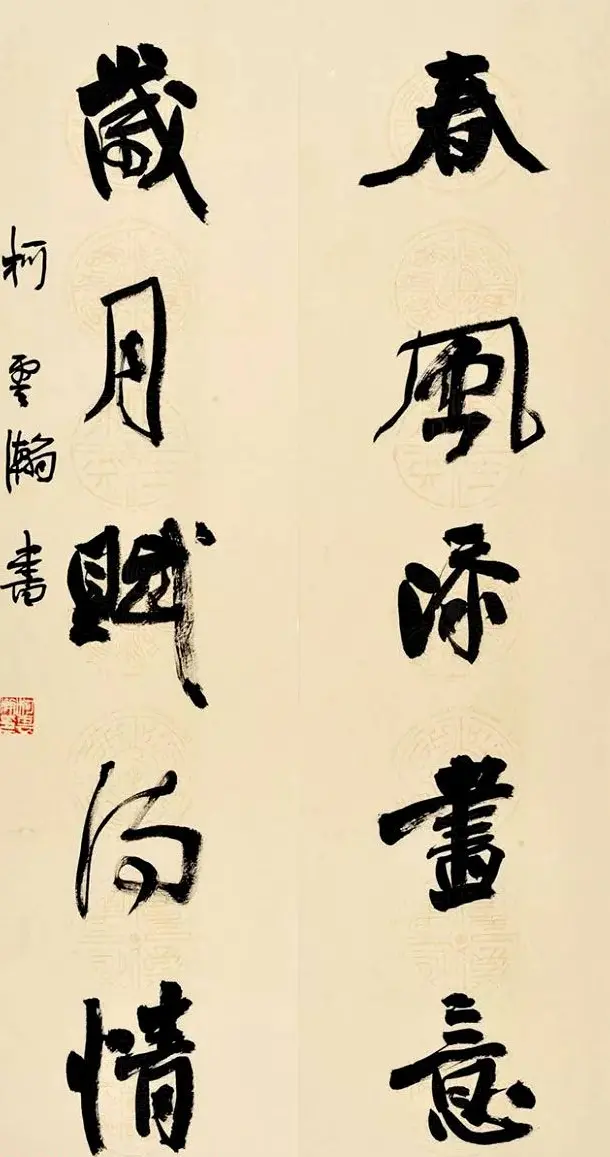 春風添畫意
歲月賦詩情
柯雲瀚書